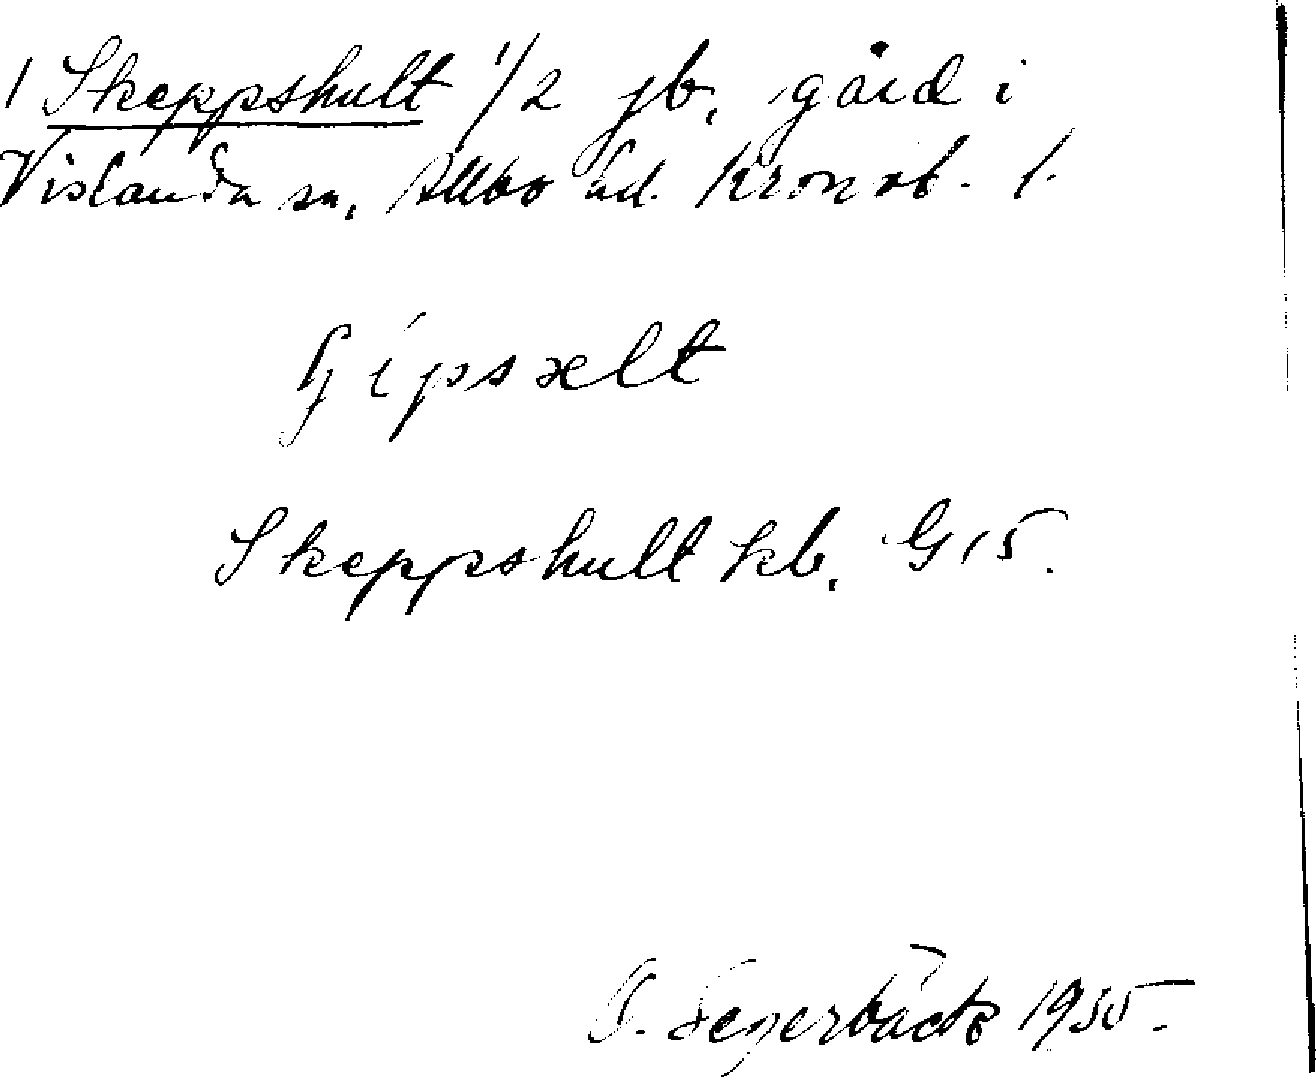 1 Skeppshult 1/2 jb. gård i
Vislanda sn, Allbo hd. Kronob. l.
Skeppshult kb. G 15.
Segerbäck 1955.